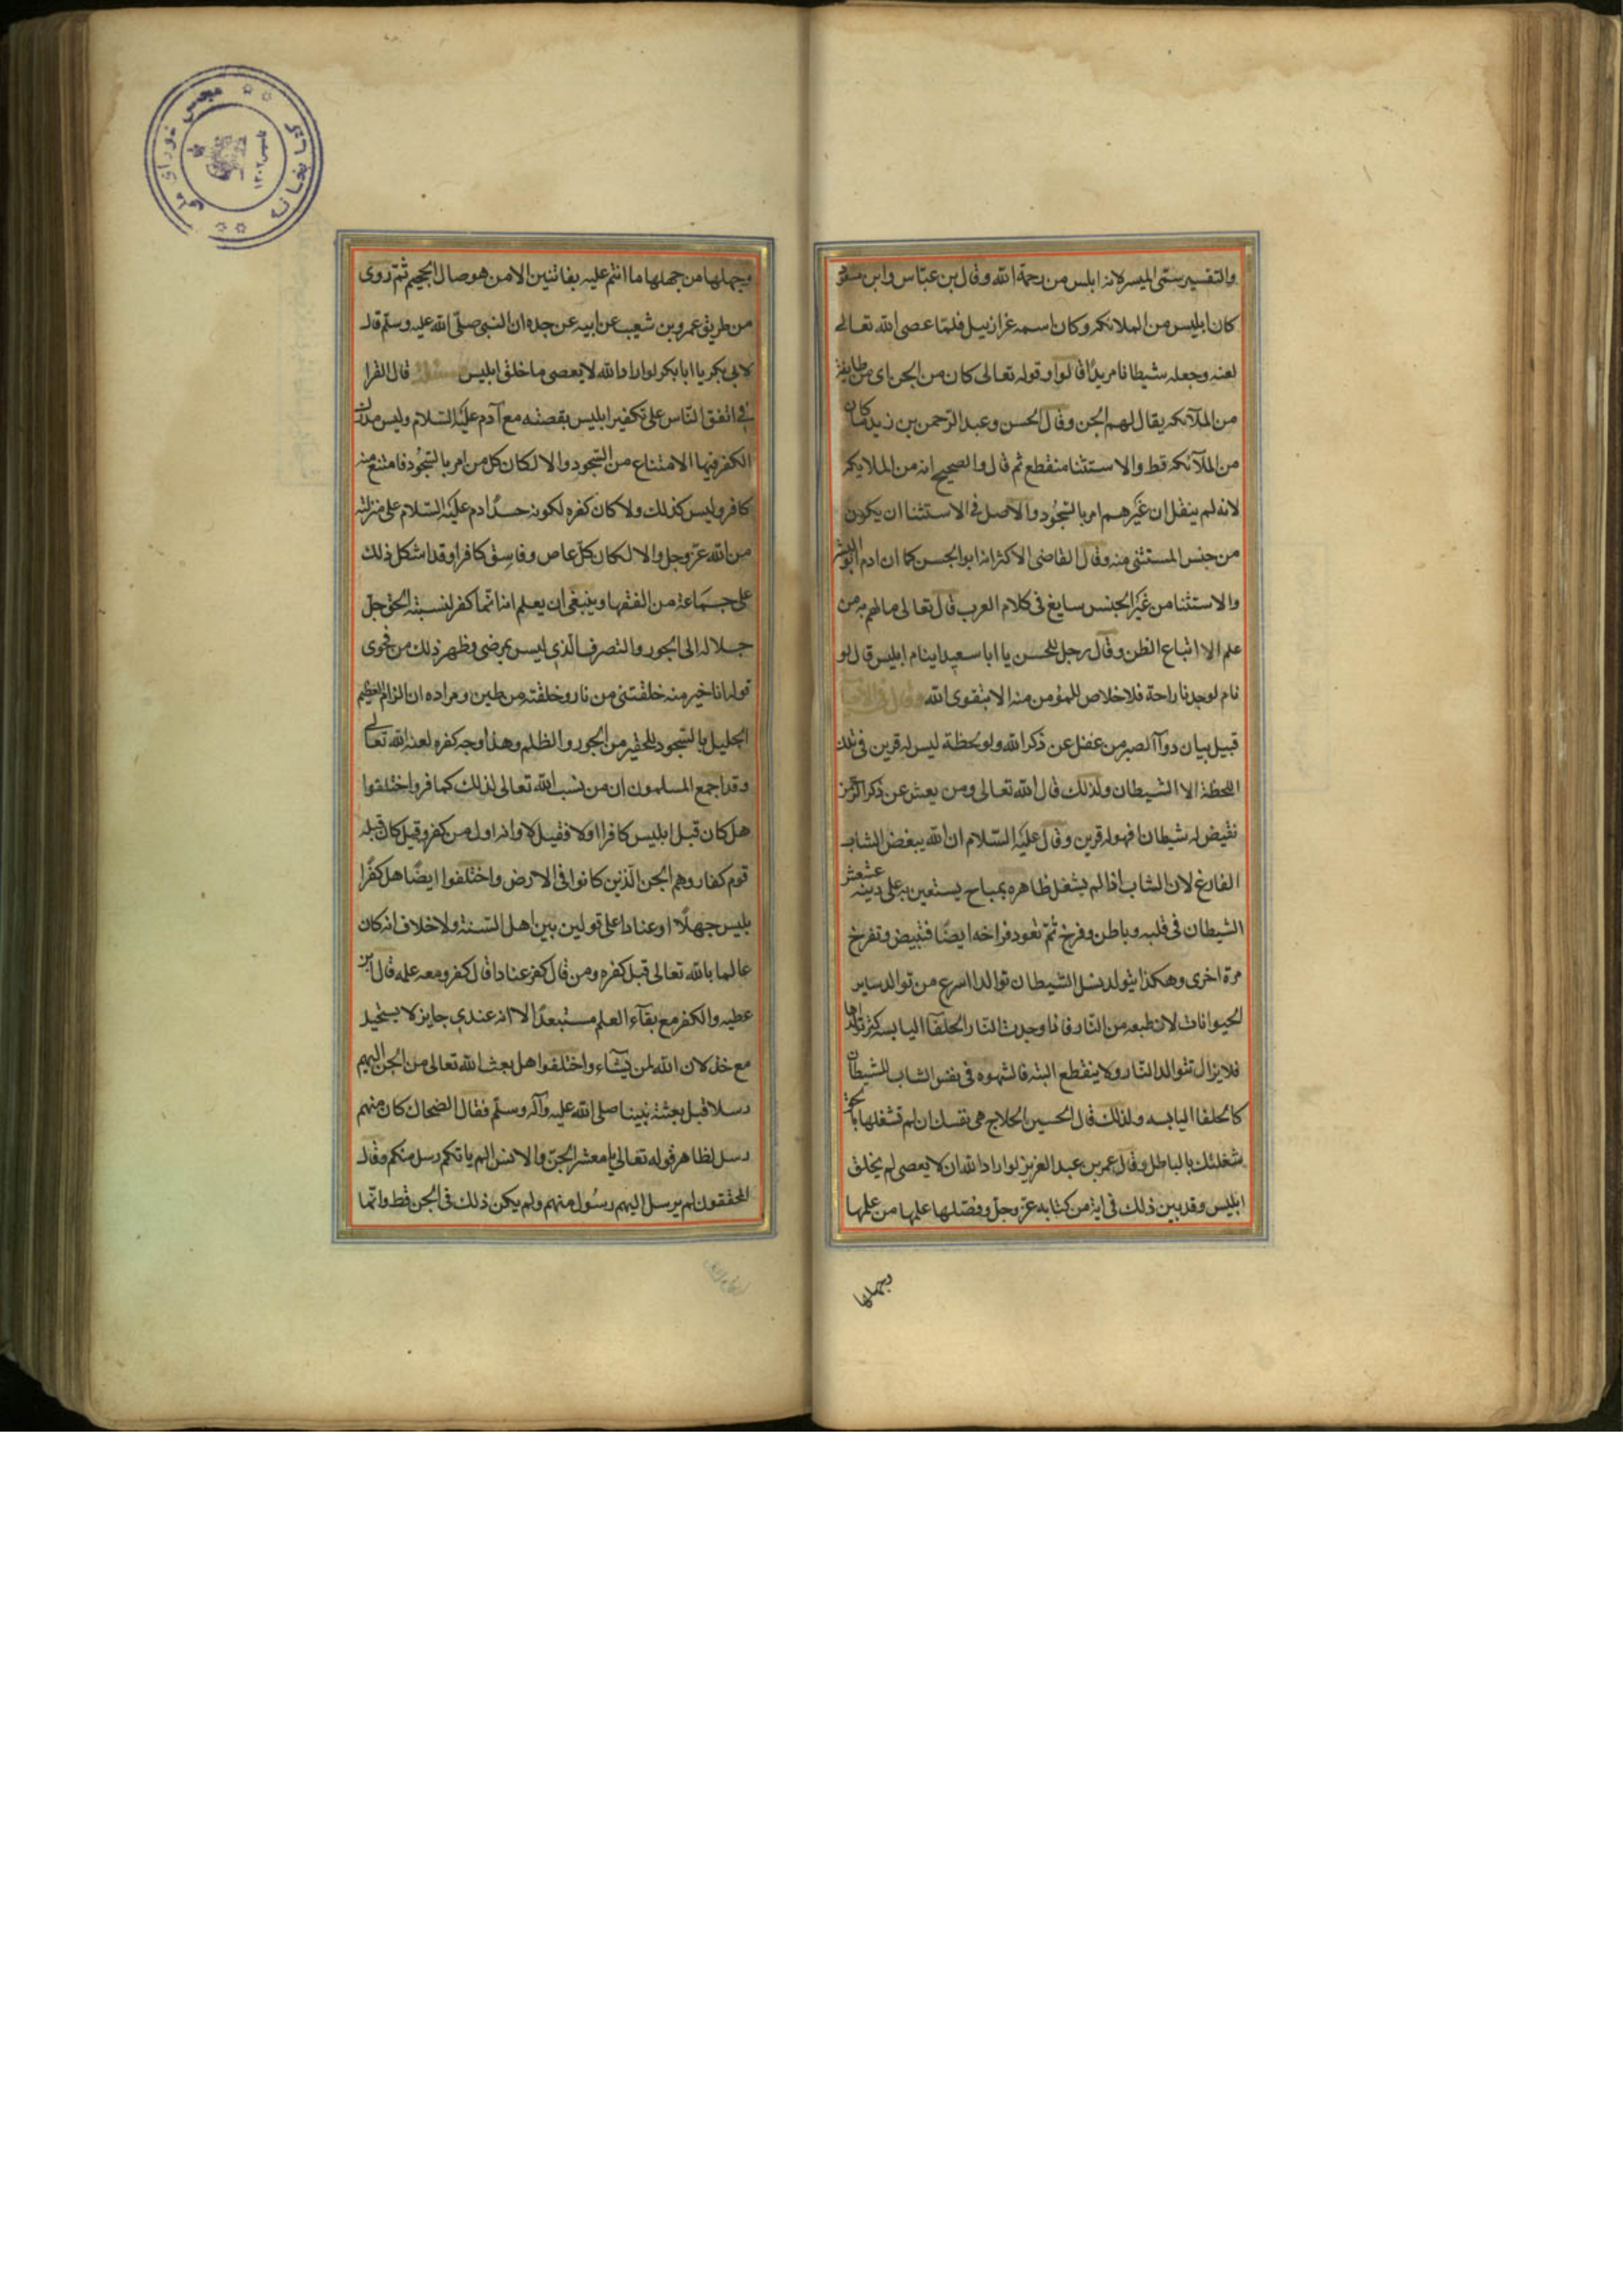 والتفسير سمى ابليس لانه ابلس من رحمة الله وقال بن عباس وابن مسعود
كان ابليس من الملائكه وكان اسمه عزازييل فلمّا عصى الله تعالى
لعنه وجعله شيطانا مريدًا قالوا وقوله تعالى كان من الجن اى من طايفة
من الملآئكه يقال لهم الجن وقال الحسن وعبد الرّحمن بن زيد ما كان
من الملآئكه قط والاستثنا منقطع ثم قال والصحيح انه من الملايكه
لانه لم ينقل ان غيرهم امر بالسّجُود والاصل فى الاستثنا ان يكون
من جنس المستثنى منه وقال القاضى الاكثر انه ابو الجسن كما ان ادم ابو البشر
والاستثنا من غير الجنس سايغ فى كلام العرب قال تعالى مالهم به من
علم الا اتباع الظن وقال رجل للحسن يا ابا سعيد اينام ابليس قال لو
نام لوجدنا راحة فلا خلاص للمؤمن منه الا بتقوى الله وقال فى الاحيا
قبيل بيان دوآ الصبر من غفل عن ذكر الله ولو لحظة ليس له قرين فى تلك
اللحظة الا الشيطان ولذلك قال الله تعالى ومن يعش عن ذكر الرّحمن
نقيض له شيطانا فهو له قرين وقال عليه السّلام ان الله يبغض الشاب
الفارغ لان الشاب اذا لم يشغل ظاهره بمباح يستعين به على دينه عشعش
الشيطان فى قلبه وباطن وفرخ ثمّ تعود فراخه ايضًا فتبيض وتفرخ
مرة اخرى وهكذا يتولد نسل الشيطان توالدا اسرع من توالد ساير
الحيوانات لان طبعه من النار فاذا وجدت النار الحلفآ اليابسه كثر توالدها
فلا يزال تتوالد النّار ولا ينقطع البته فالشهوه فى نفس الشاب للشيطان
كالحلفا اليابسه ولذلك قال الحسين الحلاج هى نفسك ان لم تشغلها بالحق
شغلتك بالباطل وقال عمر بن عبد العزيز لو اراد الله ان لا يعصى لم يخلق
ابليس وقد بين ذلك فى اية من كتابه عزّ وجلّ وفصّلها علمها من علمها
وجهلها
وجهلها من جهلها ما انتم عليه بفاتنين الا من هو صال الجحيم ثمّ روى
من طريق عمرو بن شعيب عن ابيه عن جده ان النبى صلّى الله عليه وسلّم قال
لابى بكر يا ابا بكر لو اراد الله لا يعصى ما خلق ابليس قال القرا
فى اتفق النّاس على تكفير ابليس بقصته مع آدم عليه السّلام وليس مدرك
الكفر فيها الامتناع من السّجود والا لكان كل من امر بالسّجُود فامتنع منه
كافر وليس كذلك ولا كان كفره لكونه حسدًا ادم عليه السّلام على منزلته
من الله عزّ وجل والا لكان كلّ عاص وفاسق كافرا وقد اشكل ذلك
على جماعة من الفقها وينبغى ان يعلم انه انّما كفر لنسبته الحق جلّ
جلاله الى الجور والتصرف الّذى ليس بمرضى وظهر ذلك من فحوى
قوله انا خير منه خلقتنى من نار وخلقته من طين ومراده ان الزام العظيم
الجليل بالسّجود للحقير من الجور والظلم وهذا وجه كفره لعنه الله تعالى
وقد اجمع المسلمون ان من نسب الله تعالى لذلك كما فر واختلفوا
هل كان قبل ابليس كافر ا اولا فقيل لا وانه اول من كفر وقيل كان قبله
قوم كفار وهم الجن الّذين كانوا فى الارض واختلفوا ايضًا هل كفر ا
بليس جهلًا او عنادا على قولين بين اهل السّنة ولا خلاف انه كان
عالما بالله تعالى قبل كفره ومن قال كفر عنادا قال كفر ومعه علمه قال ابن
عطيه والكفر مع بقآء العلم مستبعدًا الا انه عندى جايز لا يستحيل
مع خذلان الله لمن يشآء واختلفوا هل بعث الله تعالى من الجن اليهم
رسلا قبل بعثة نبينا صلى الله عليه وآله وسلّم فقال الضحاك كان منهم
رسل لظاهر قوله تعالى يا معشر الجنّ والانس الم ياتكم رسل منكم وقال
المحققون لم يرسل اليهم رسُول منهم ولم يكن ذلك فى الجن قط وانّما